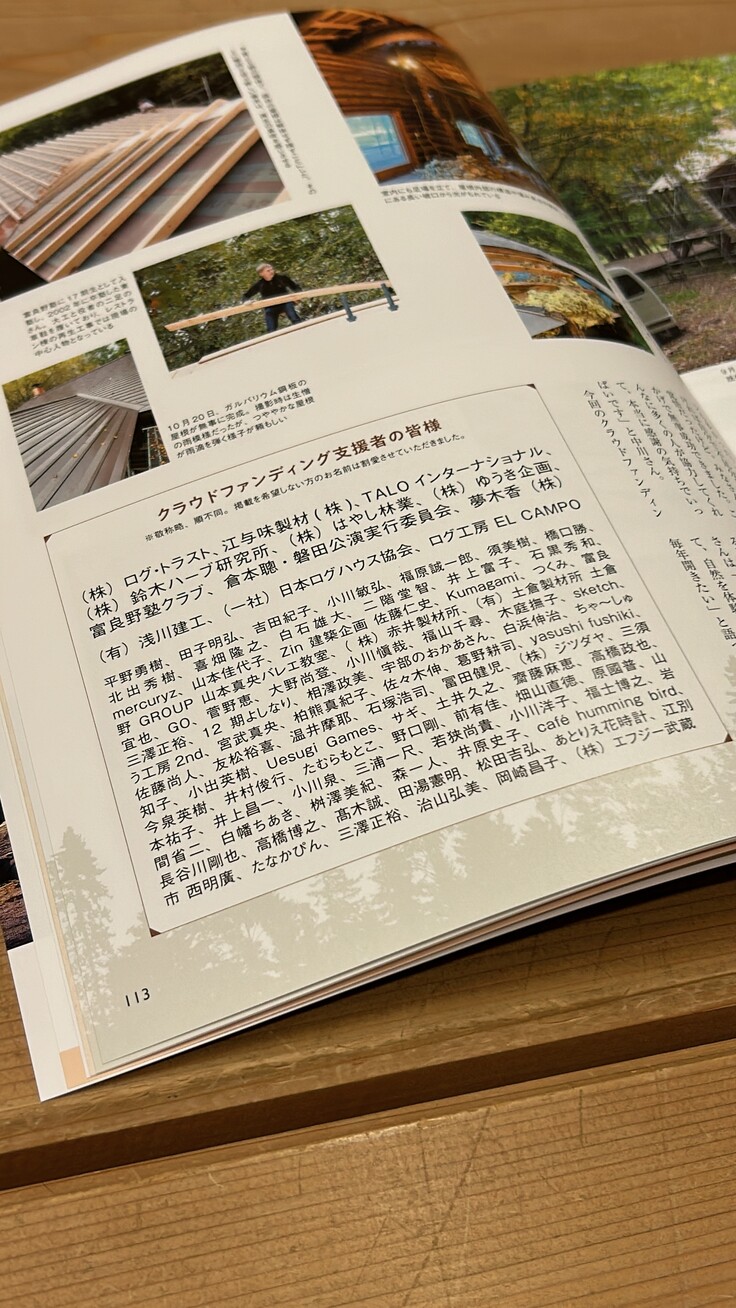 富良野塾に17期生として入
塾し、2002年に卒塾した東
さん。大工と役者の二足の
草鞋を履いており、レストラ
ン棟の再生工事では現場の
中心人物となっている
10月20日、ガルバリウム鋼板の
屋根が無事に完成。撮影時は生憎
の雨模様だったが、つややかな屋根
が雨滴を弾く様子が頼もしい
クラウドファンディング支援者の皆様
※敬称略、順不同。掲載を希望しない方のお名前は割愛させていただきました。
(株) ログ・トラスト、江与味製材 (株)、TALO インターナショナル、
(株) 鈴木ハーブ研究所、(株) はやし林業、(株) ゆうき企画、
富良野塾クラブ、倉本聰・磐田公演実行委員会、夢木香 (株)
(有) 浅川建工、(一社) 日本ログハウス協会、ログ工房 EL CAMPO
平野勇樹、田子明弘、吉田紀子、小川敏弘、福原誠一郎、須美樹、橋口勝、
北出秀樹、喜畑隆之、白石雄大、二階堂智、井上富子、石黒秀和、
mercuryz、山本佳代子、Zin 建築企画 佐藤仁史、Kumagami、つくみ、富良
野 GROUP 山本真央バレエ教室、(株) 赤井製材所、(有) 土倉製材所 土倉
宜也、GO、菅野恵、大野尚登、小川慎哉、福山千尋、木庭撫子、sketch、
三澤正裕、12 期よしなり、相澤政美、宇部のおかあさん、白浜伸治、ちゃ〜しゅ
う工房 2nd、宮武真央、柏熊真紀子、佐々木伸、葛野耕司、yasushi fushiki、
佐藤尚人、友松裕喜、温井摩耶、石塚浩司、富田健児、(株) ジツダヤ、三須
知子、小出英樹、Uesugi Games、サギ、土井久之、齋藤麻恵、高橋政也、
今泉英樹、井村俊行、たむらもとこ、野口剛、前有佳、畑山直徳、原國普、山
本祐子、井上昌一、小川泉、三浦一尺、若狭尚貴、小川洋子、福士博之、岩
間省二、白幡ちあき、桝澤美紀、森一人、井原史子、café humming bird、
長谷川剛也、高橋博之、髙木誠、田湯憲明、松田吉弘、あとりえ花時計、江別
市 西明廣、たなかぴん、三澤正裕、治山弘美、岡崎昌子、(株) エフジー武蔵
113